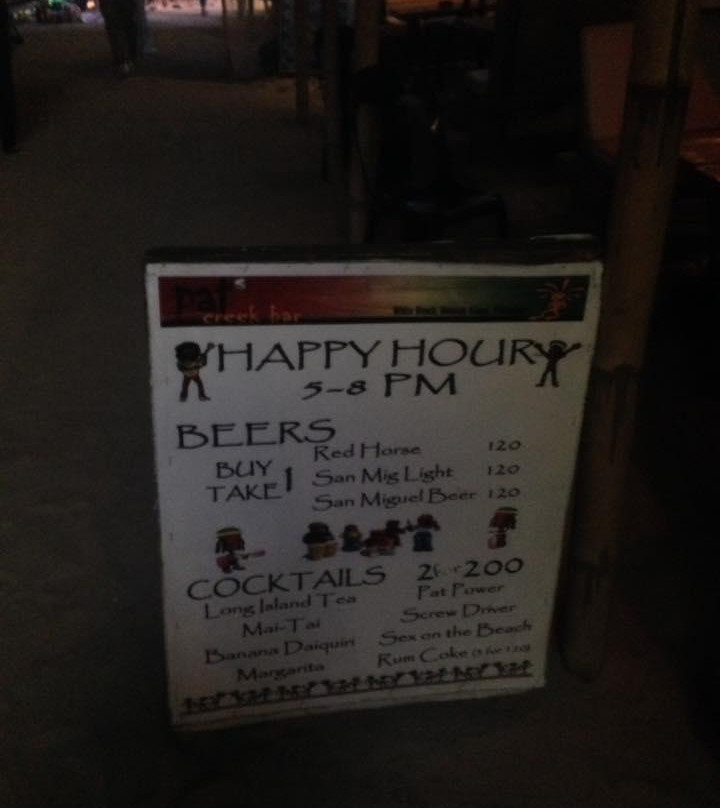 Pat's
creek bar
HAPPY HOUR
5-8 PM
BEERS
BUY 1
TAKE 1
Red Horse 120
San Mig Light 120
San Miguel Beer 120
COCKTAILS 2 for 200
Long Island Tea
Mai-Tai
Banana Daiquiri
Margarita
Pat Power
Screw Driver
Sex on the Beach
Rum Coke